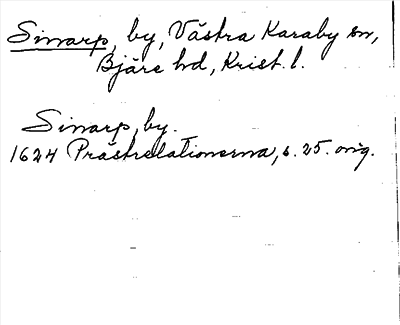 Sinarp, by, Västra Karaby sn,
Bjäre hd, Krist. l.
Sinarp, by.
1624 Prästrelationerna, s. 25. orig.